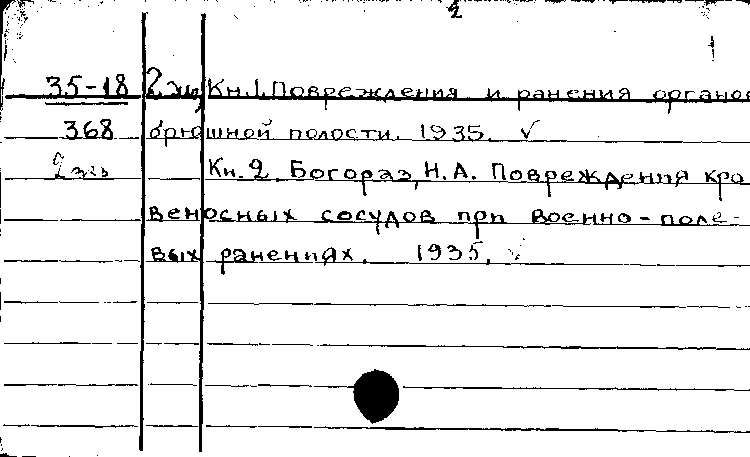 2
35-18 2 экз Кн.1. Повреждения и ранения органов
368 брюшной полости. 1935. ✓
2 экз Кн.2. Богораз, Н.А. Повреждения кро
веносных сосудов при военно-поле-
вых ранениях. 1935. ✓